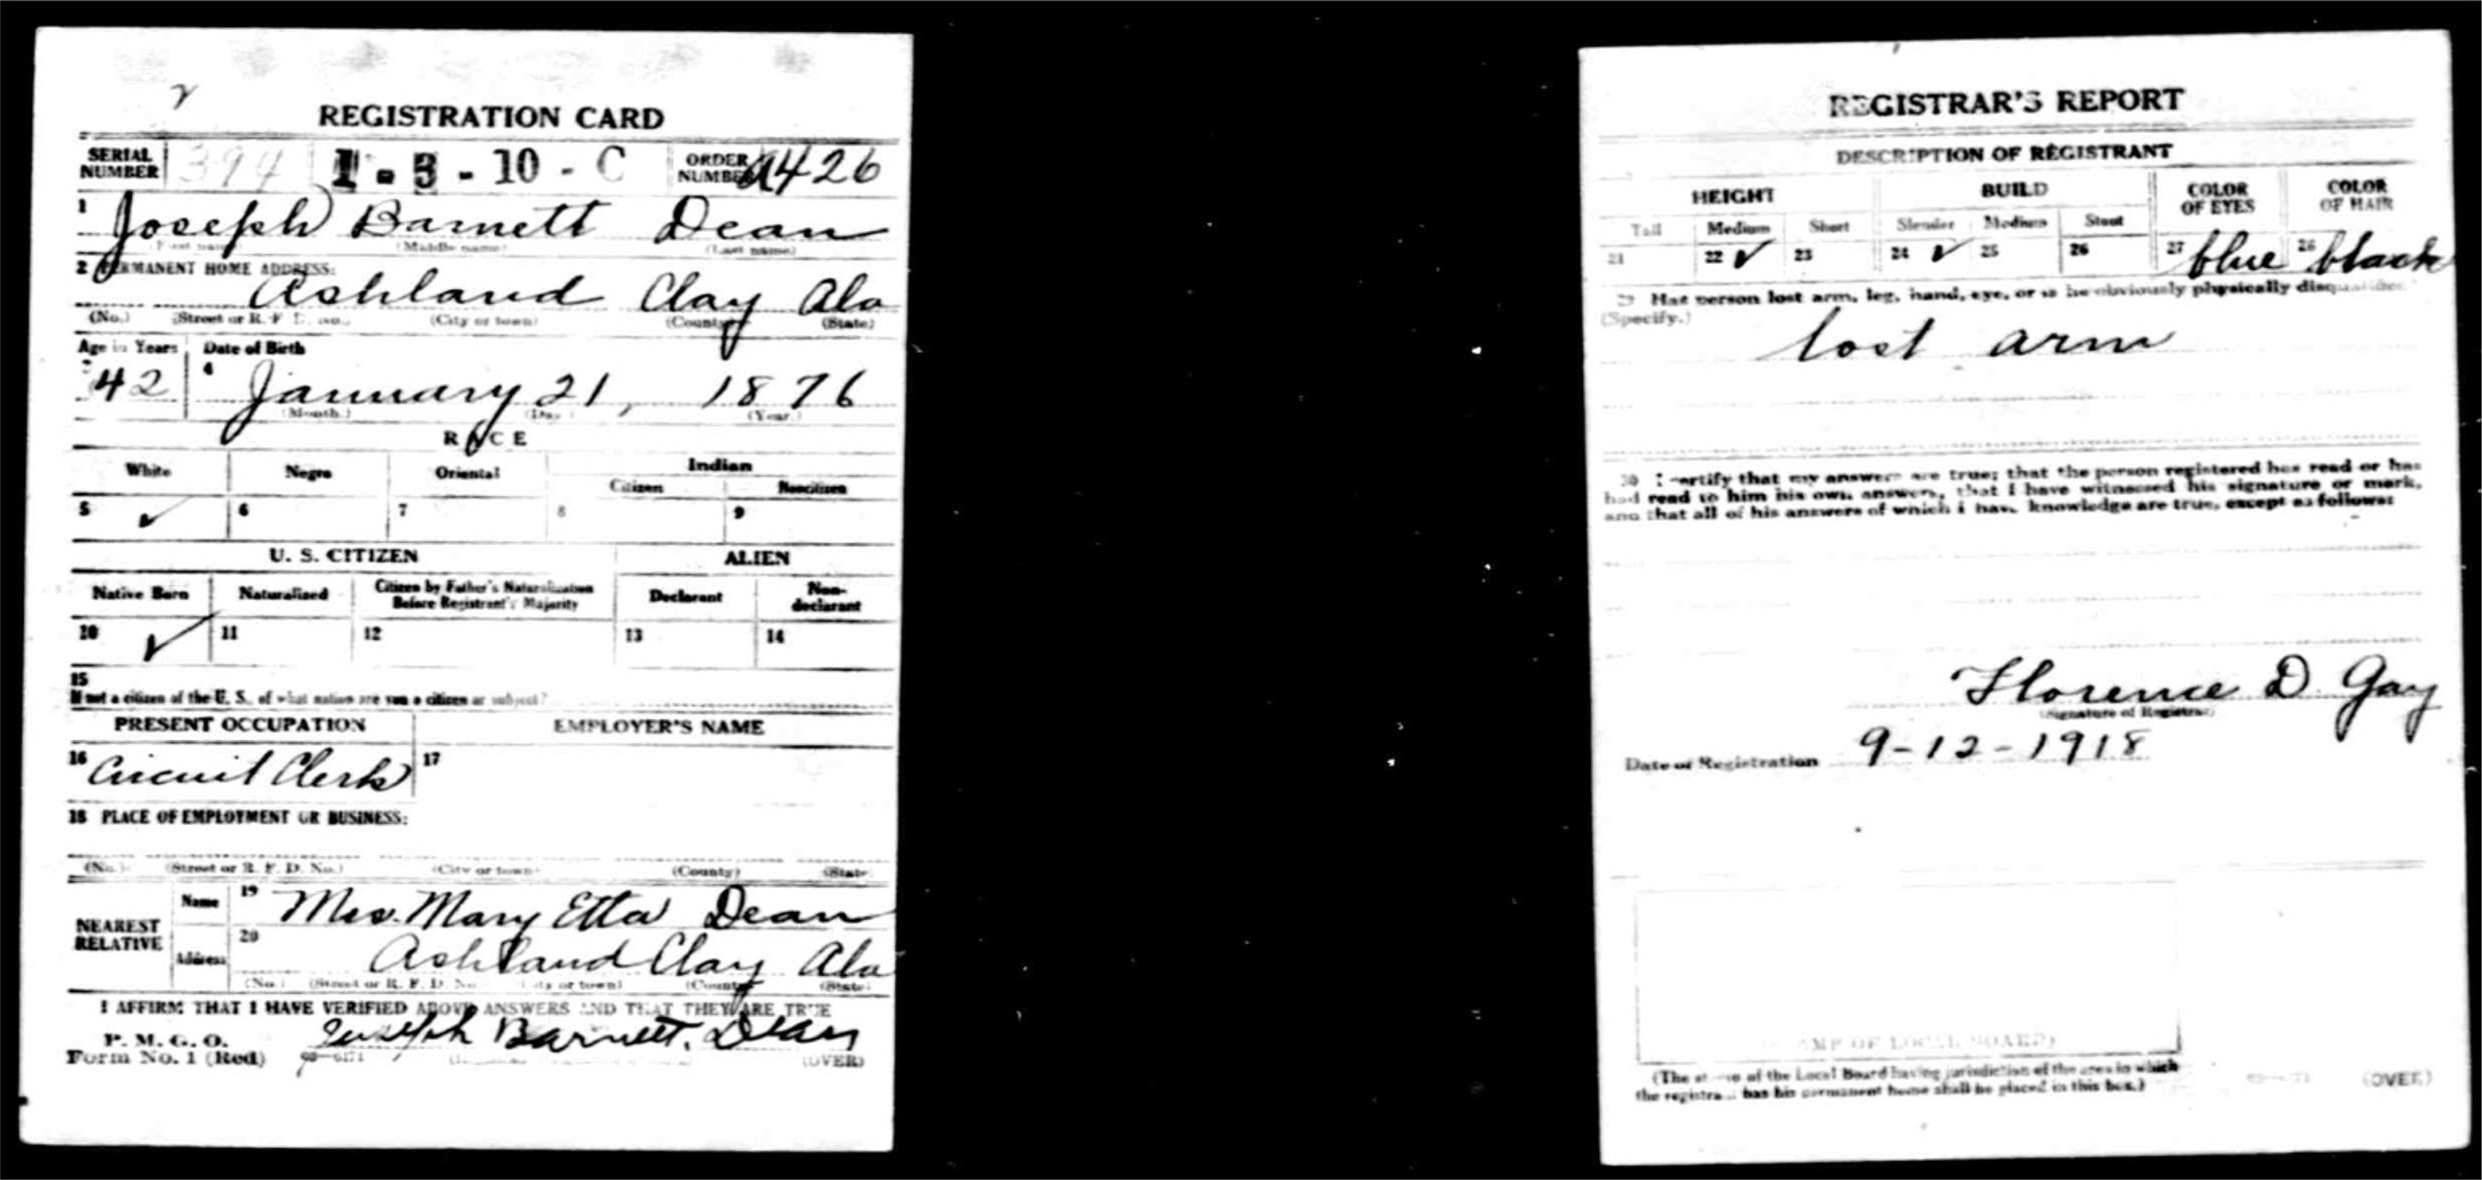 REGISTRATION CARD
SERIAL NUMBER 394 1 - 3 - 10 - C ORDER NUMBER A426
1 Joseph Barnett Dean
(First name) (Middle name) (Last name)
2 PERMANENT HOME ADDRESS:
Ashland Clay Ala
(No.) (Street or R. F. D. No.) (City or town) (County) (State)
Age in Years Date of Birth
3 42 4 January 21, 1876
(Month.) (Day.) (Year.)
RACE
White Negro Oriental Indian
Citizen Noncitizen
5 ✓ 6 7 8 9
U. S. CITIZEN ALIEN
Native Born Naturalized Citizen by Father's Naturalization Before Registrant's Majority Declarant Non-declarant
10 ✓ 11 12 13 14
15
If not a citizen of the U. S., of what nation are you a citizen or subject?
PRESENT OCCUPATION EMPLOYER'S NAME
16 Circuit Clerk 17
18 PLACE OF EMPLOYMENT OR BUSINESS:
(No.) (Street or R. F. D. No.) (City or town) (County) (State)
NEAREST RELATIVE
Name 19 Mrs. Mary Etta Dean
Address 20 Ashland Clay Ala
(No.) (Street or R. F. D. No.) (City or town) (County) (State)
I AFFIRM THAT I HAVE VERIFIED ABOVE ANSWERS AND THAT THEY ARE TRUE
P. M. G. O.
Form No. 1 (Red) Joseph Barnett. Dean
(OVER)
REGISTRAR'S REPORT
DESCRIPTION OF REGISTRANT
HEIGHT BUILD COLOR OF EYES COLOR OF HAIR
Tall Medium Short Slender Medium Stout
21 22 ✓ 23 24 ✓ 25 26 27 blue 28 black
29 Has person lost arm, leg, hand, eye, or is he obviously physically disqualified?
(Specify.)
lost arm
30 I certify that my answers are true; that the person registered has read or has
had read to him his own answers, that I have witnessed his signature or mark,
and that all of his answers of which I have knowledge are true, except as follows:
Florence D. Gay
(Signature of Registrar)
Date of Registration 9-12-1918
(STAMP OF LOCAL BOARD)
(The stamp of the Local Board having jurisdiction of the area in which
the registrant has his permanent home shall be placed in this box.)
(OVER)